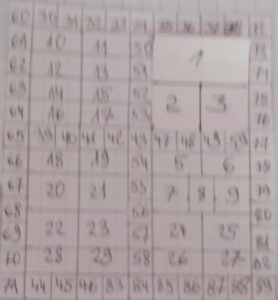 60 30 31 32 33 34 35 36 37 38 72
61 10 11 50 1 73
62 12 13 51 74
63 14 15 52 2 3 75
64 16 17 53 76
65 39 40 41 42 43 47 48 49 59 77
66 18 19 54 5 6
67 20 21 55 7 8 9 79
68 56
69 22 23 57 24 25 81
70 28 29 58 26 27 82
71 44 45 46 83 84 85 86 87 88 89